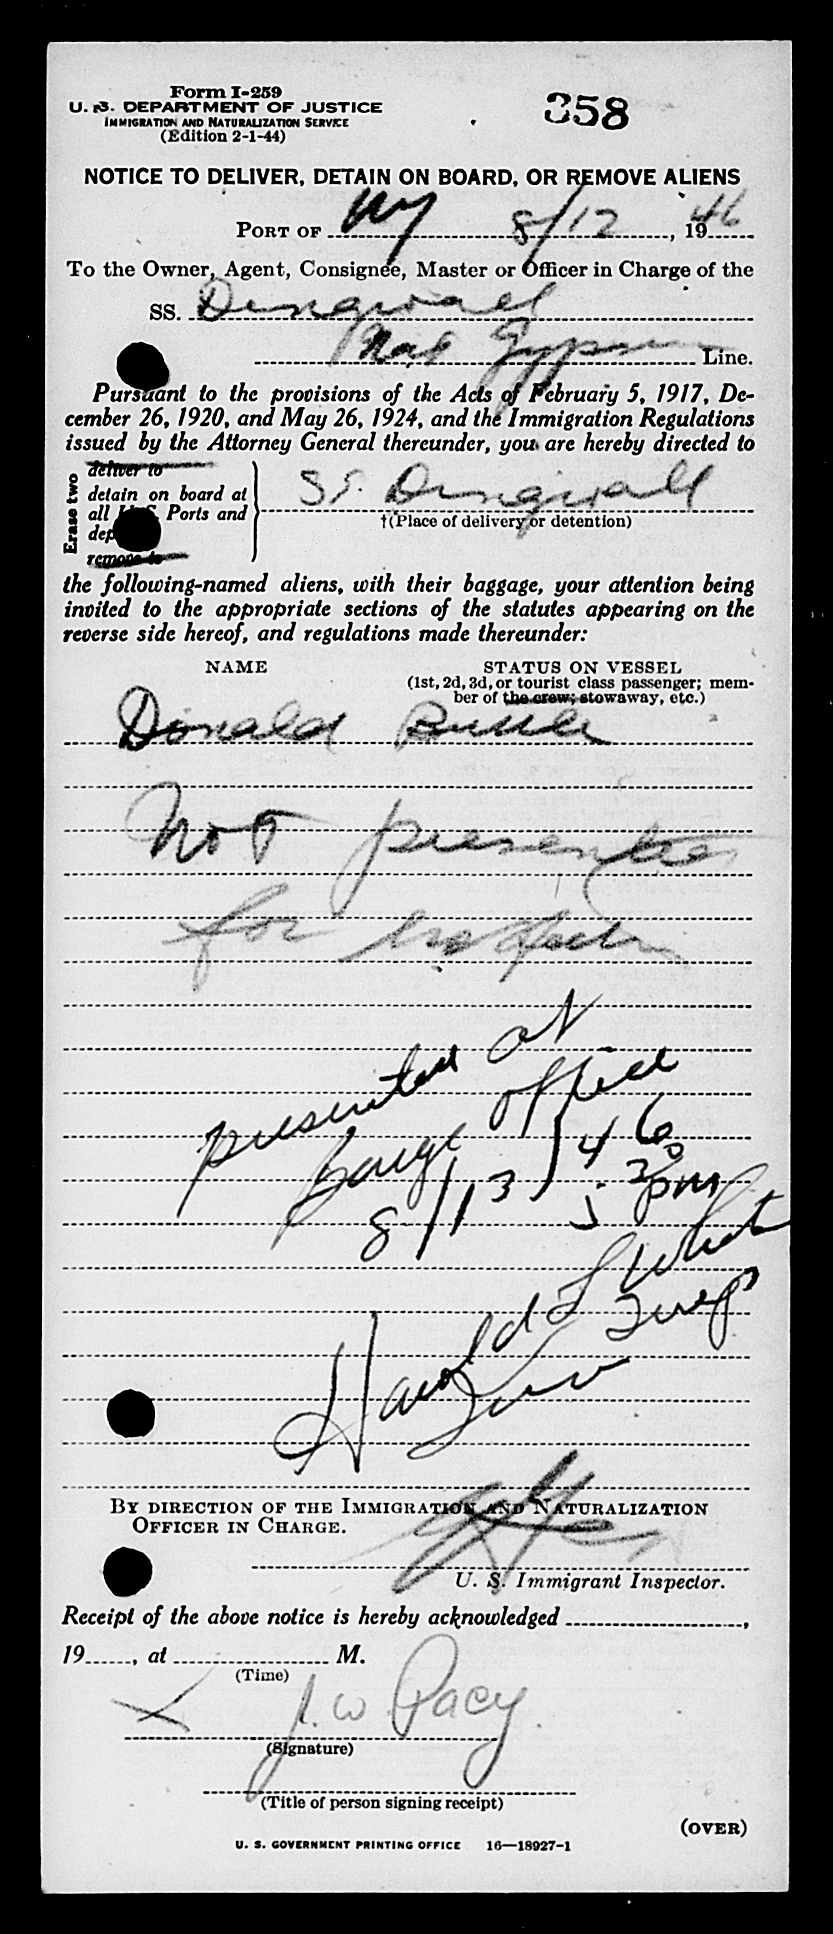 Form I-259
U. S. DEPARTMENT OF JUSTICE
IMMIGRATION AND NATURALIZATION SERVICE
(Edition 2-1-44)
358
NOTICE TO DELIVER, DETAIN ON BOARD, OR REMOVE ALIENS
PORT OF NY 8/12, 1946
To the Owner, Agent, Consignee, Master or Officer in Charge of the
SS. Dingwall
Nat Gypsum Line.
Pursuant to the provisions of the Acts of February 5, 1917, De-
cember 26, 1920, and May 26, 1924, and the Immigration Regulations
issued by the Attorney General thereunder, you are hereby directed to
Erase two
deliver to
detain on board at
all U. S. Ports and
dep
remove to
SS. Dingwall
†(Place of delivery or detention)
the following-named aliens, with their baggage, your attention being
invited to the appropriate sections of the statutes appearing on the
reverse side hereof, and regulations made thereunder:
NAME
STATUS ON VESSEL
(1st, 2d, 3d, or tourist class passenger; mem-
ber of the crew; stowaway, etc.)
Donald
Not presented
for inspection
presented at
Barge office
8/13/46
3 30 pm
Harold L
By direction of the Immigration and Naturalization
Officer in Charge.
U. S. Immigrant Inspector.
Receipt of the above notice is hereby acknowledged ,
19 , at M.
(Time)
X J. W. Pacy
(Signature)
(Title of person signing receipt)
(OVER)
U. S. GOVERNMENT PRINTING OFFICE 16—18927-1